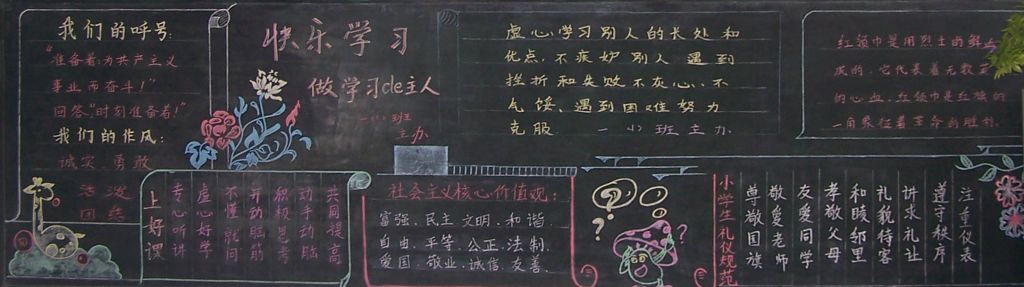 我们的呼号:
“准备着:为共产主义
事业而奋斗!”
回答:“时刻准备着!”
我们的作风:
诚实 勇敢
活泼
团结
快乐学习
做学习de主人
一(1)班
主办
虚心学习别人的长处和
优点,不疾妒别人 遇到
挫折和失败不灰心、不
气馁、遇到困难努力
克服 一(2)班主办
红领巾是用烈士的鲜
成的,它代表着无数
的心血,红领巾是红旗的
一角象征着革命的胜利.
上好课
专心听讲
虚心好学
不懂就问
开动脑筋
积极思考
动手动脑
共同提高
社会主义核心价值观:
富强、民主、文明、和谐、
自由、平等、公正、法制、
爱国、敬业、诚信、友善、
? ? ?
小学生礼仪规范
尊敬国旗
敬爱老师
友爱同学
孝敬父母
和睦邻里
礼貌待客
讲求礼让
遵守秩序
注重仪表